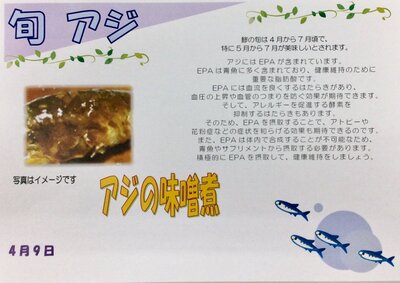 旬 アジ
鯵の旬は４月から７月頃で、
特に５月から７月が美味しいとされます。
アジにはEPAが含まれています。
EPAは青魚に多く含まれており、健康維持のために
重要な脂肪酸です。
EPAには血流を良くするはたらきがあり、
血圧の上昇や血管のつまりを防ぐ効果が期待できます。
そして、アレルギーを促進する酵素を
抑制するはたらきもあります。
そのため、EPAを摂取することで、アトピーや
花粉症などの症状を知らげる効果も期待できるのです。
また、EPAは体内で合成することが不可能なため、
青魚やサプリメントから摂取する必要があります。
積極的にEPAを摂取して、健康維持をしましょう。
写真はイメージです
アジの味噌煮
４月９日